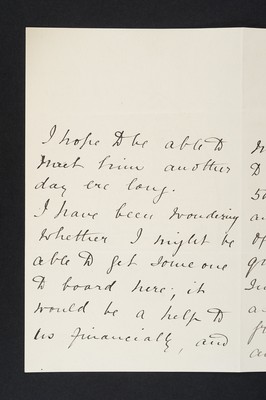 I hope to be able to
meet him another
day ere long.
I have been wondering
whether I might be
able to get some one
to board here; it
would be a help to
us financially, and